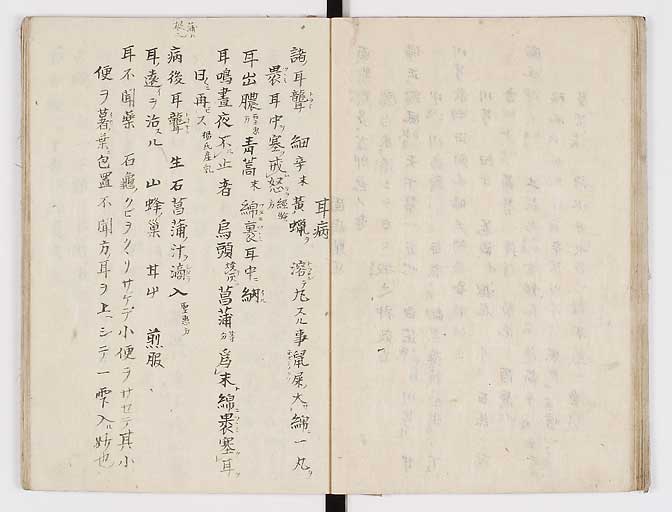 耳病
諸耳聾 細辛末 黄蠟ヲ 溶テ丸スル事鼠屎大 綿一丸ヲ
裹耳中ニ塞戒怒 經驗方
耳出膿 聖惠方 青蒿末 綿裹耳中ニ納
耳鳴晝夜不止者 烏頭 燒灰 菖蒲 等分 爲末綿裹塞耳
日再ス 楊氏産乳
病後耳聾 生石菖蒲汁滴入 聖惠方
耳遠ヲ治スル 山蜂巢 甘艸 煎服
耳不聞藥 石龜クビヲクヽリサケテ小便ヲサセテ其小
便ヲ蕃葉包置不聞方ノ耳ヲ上ニシテ一雫入ル妙也